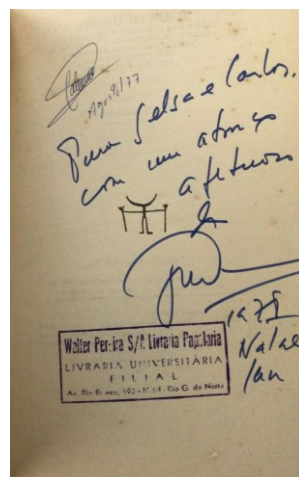 Agosto/77
Para Gelsa e Carlos,
com um abraço
afetuoso
de
1978
Natal
Jan
Walter Pereira S/A Livraria Papelaria
LIVRARIA UNIVERSITÁRIA
FILIAL
Av. Rio Branco, 590 - Natal - Rio G. do Norte